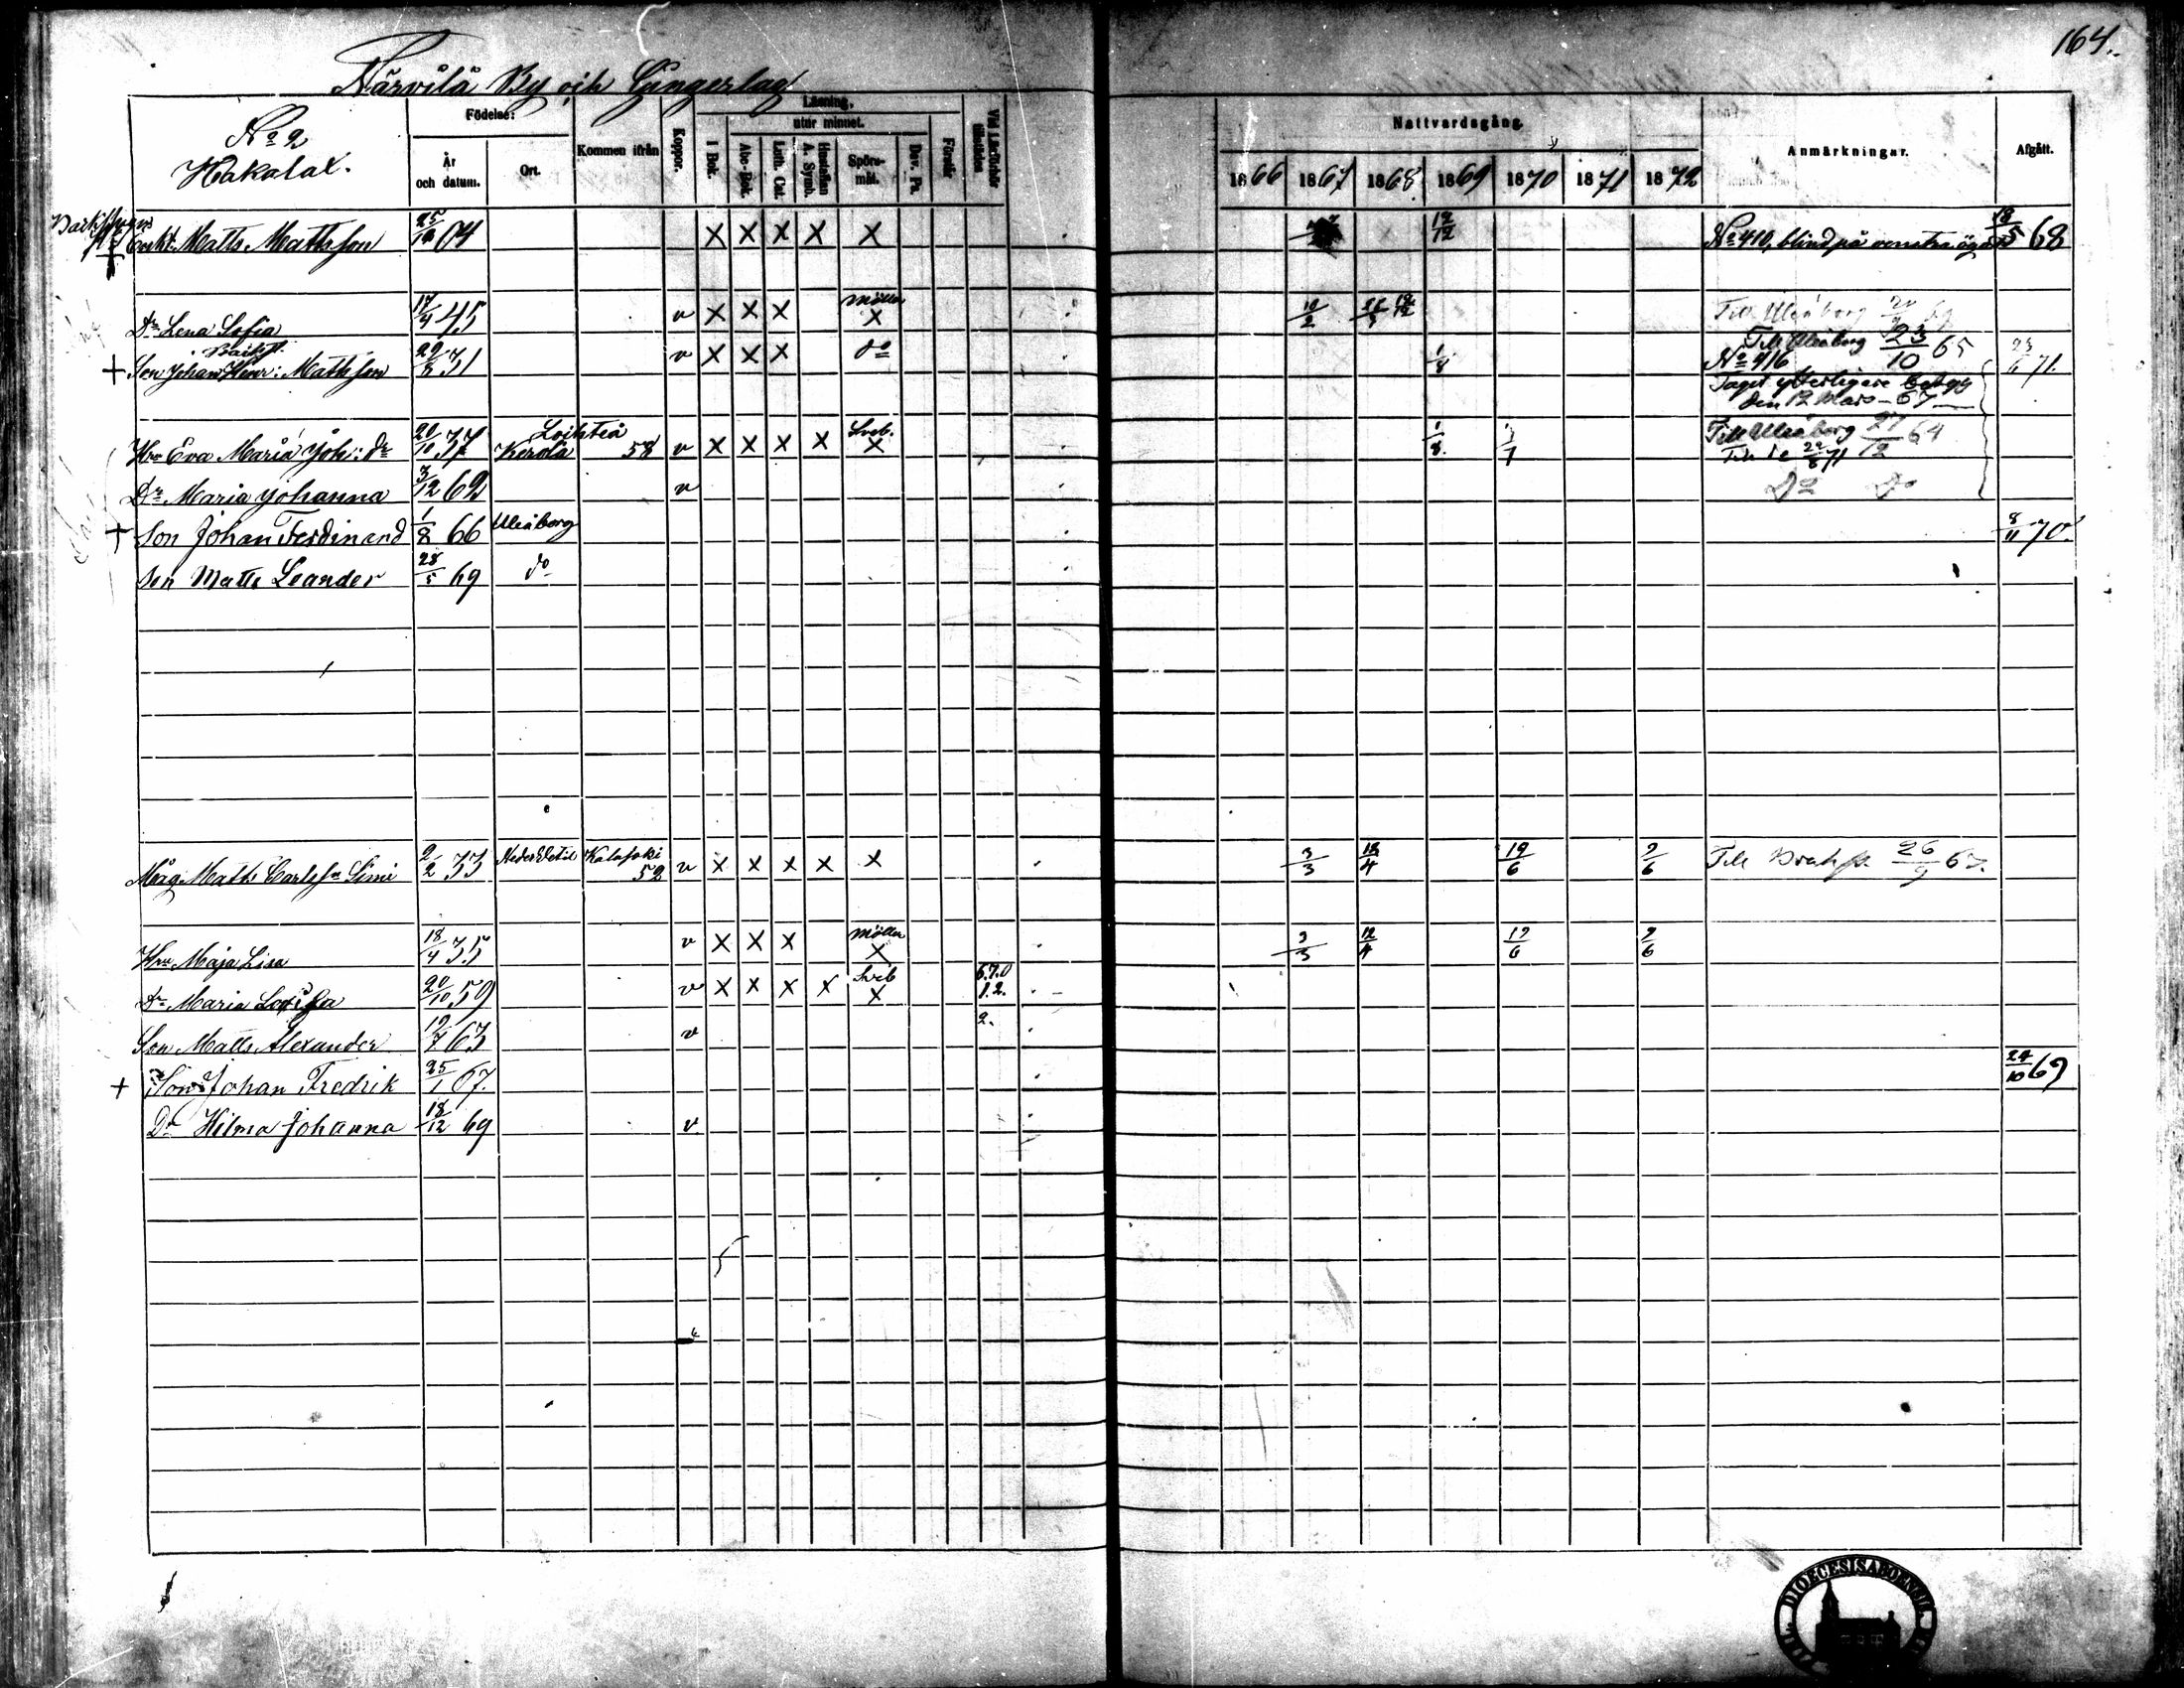 164.
Närvilä By och Gungerlag
No 2
Hakalax.
Födelse:
År och datum.
Ort.
Kommen ifrån
Koppor.
Läsning,
utur minnet.
I Bok.
Abc-Bok.
Luth. Cat.
Hustaflan A. Symb.
Spörsmål.
Dav. Ps.
Förstår
Vid Läsförhör tillstädes
Nattvardsgång.
1866 1867 1868 1869 1870 1871 1872
Anmärkningar.
Afgått.
Matts Mattsson 25/ 04 X X X X X 12/12 No 410, blind på venstra ögat 18/5 68
Dr Lena Sofia 17/4 45 v X X X Möller X 10/2 Till Uleåborg
+ Son Johan Henr: Mattsson 29/8 31 v X X X do 1/8 Till Uleåborg 23/10 65 71
No 416
Taget ytterligare betyg
den 12 Mars 67
Hu Eva Maria Joh: dr 20/10 37 Lojhteå Kerola 58 v X X X X Sveb. X 1/8. Till Uleåborg 27/12 64
Dr Maria Johanna 3/12 62 v Do Do
+ Son Johan Ferdinand 1/8 66 Uleåborg 8/11 70.
Son Matts Leander 28/5 69 do
Måg Matts Carlsson Simi 2/2 33 Neder Vetil Kalajoki 52 v X X X X X 3/3 12/4 19/6 9/6 Till 26/9 67.
Hu Maja Lisa 18/4 35 v X X X Möller X 3/3 12/4 19/6 9/6
Dr Maria Lovisa 20/10 59 v X X X X Sveb X 6.7.0 1.2.
Son Matts Alexander 19/7 63 v 2.
+ Son Johan Fredrik 25/1 67. 24/10 69
Dr Hilma Johanna 18/12 69 v
DIOECESIS ABOENSIS